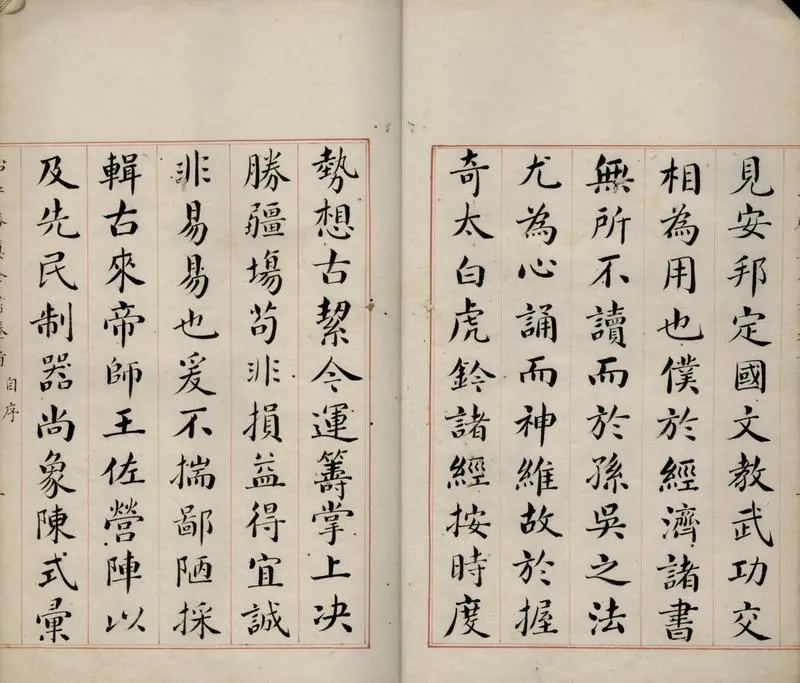 見安邦定國文教武功交
相為用也僕於經濟諸書
無所不讀而於孫吳之法
尤為心誦而神維故於握
奇太白虎鈐諸經按時度
勢想古絜今運籌掌上决
勝疆場苟非損益得宜誠
非易易也爰不揣鄙陋採
輯古來帝師王佐營陣以
及先民制器尚象陳式彙
自序